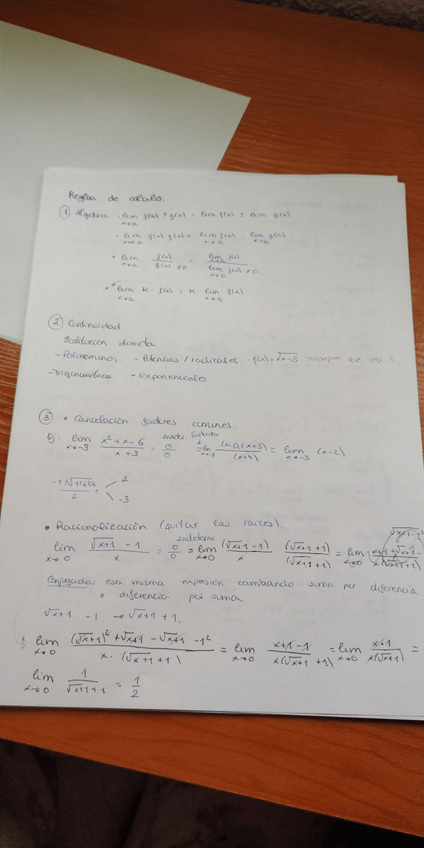 Reglas de cálculo.
① Algebra: lim x→a f(x) ± g(x) = lim f(x) ± lim g(x)
• lim x→a f(x) g(x) = lim x→a f(x) lim x→a g(x)
• lim x→a f(x)/g(x)≠0 = lim x→a f(x) / lim x→a g(x) ≠0.
• lim x→a K · f(x) = K lim x→a f(x)
② Continuidad
Sustitución directa
- Polinomios. - Potencias / radicales f(x) = √x-3
- Trigonométricas - Exponenciales
③ • Cancelación factores comunes.
Ej: lim x→-3 x²+x-6 / x+3 = 0/0 = lim x→-3 (x-2)(x+3) / (x+3) = lim x→-3 (x-2)
-1±√1+24 / 2 = 2
-3
• Racionalización (quitar las raíces).
lim x→0 √x+1 - 1 / x = 0/0 = lim x→0 (√x+1 - 1) / x · (√x+1 + 1) / (√x+1 + 1) = lim x→0
Conjugado: esa misma expresión cambiando suma por diferencia
o diferencia por suma
√x+1 - 1 → √x+1 + 1.
lim x→0 (√x+1)² + √x+1 - √x+1 - 1² / x · (√x+1 + 1) = lim x→0 x+1-1 / x(√x+1 + 1) = lim x→0 x·1 / x(√x+1) =
lim x→0 1 / √x+1 + 1 = 1/2